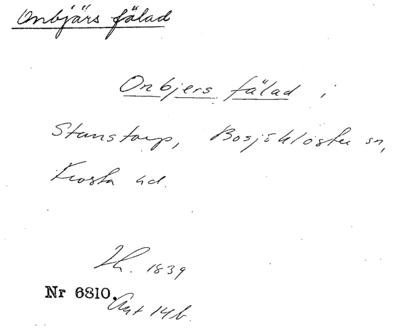 Onbjärs fälad
Onbjers fälad i
Stanstorp, Bosjökloster sn,
Frosta hd.
1839
Nr 6810. Akt 14b.